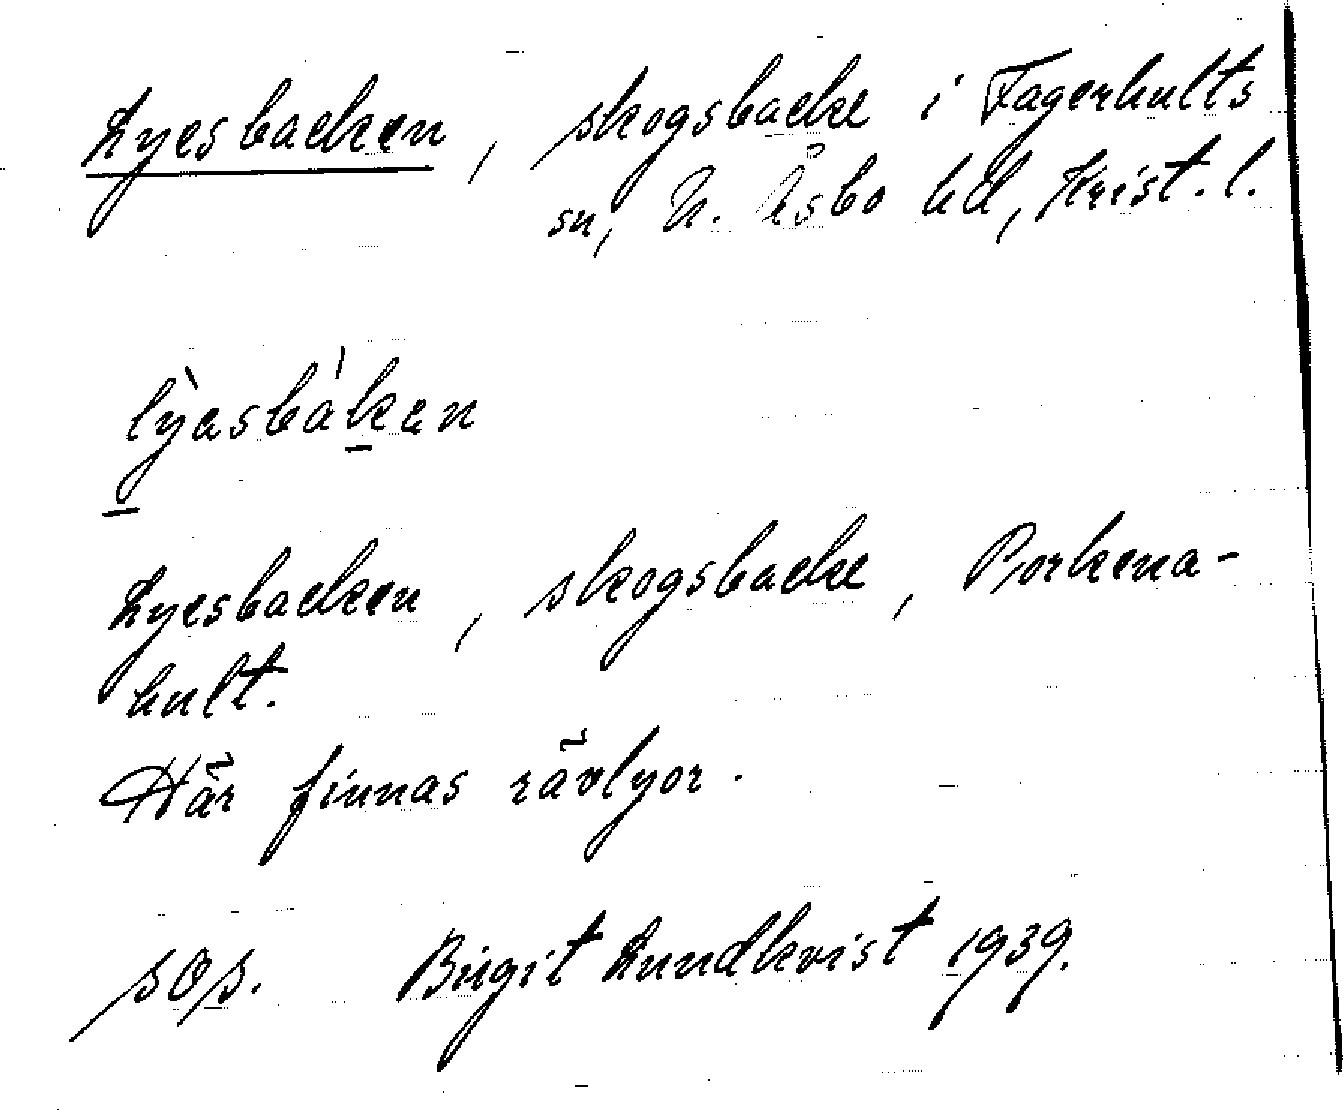 Lyesbacken, skogsbacke i Fagerhults
sn, N. Åsbo hd, Krist. l.
lỳasbàkan
Lyesbacken, skogsbacke, Porkena-
hult.
Här finnas rävlyor.
sOs. Birgit Lundkvist 1939.